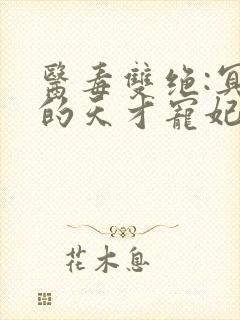 醫毒雙绝:冥
的天才寵妃
花木息